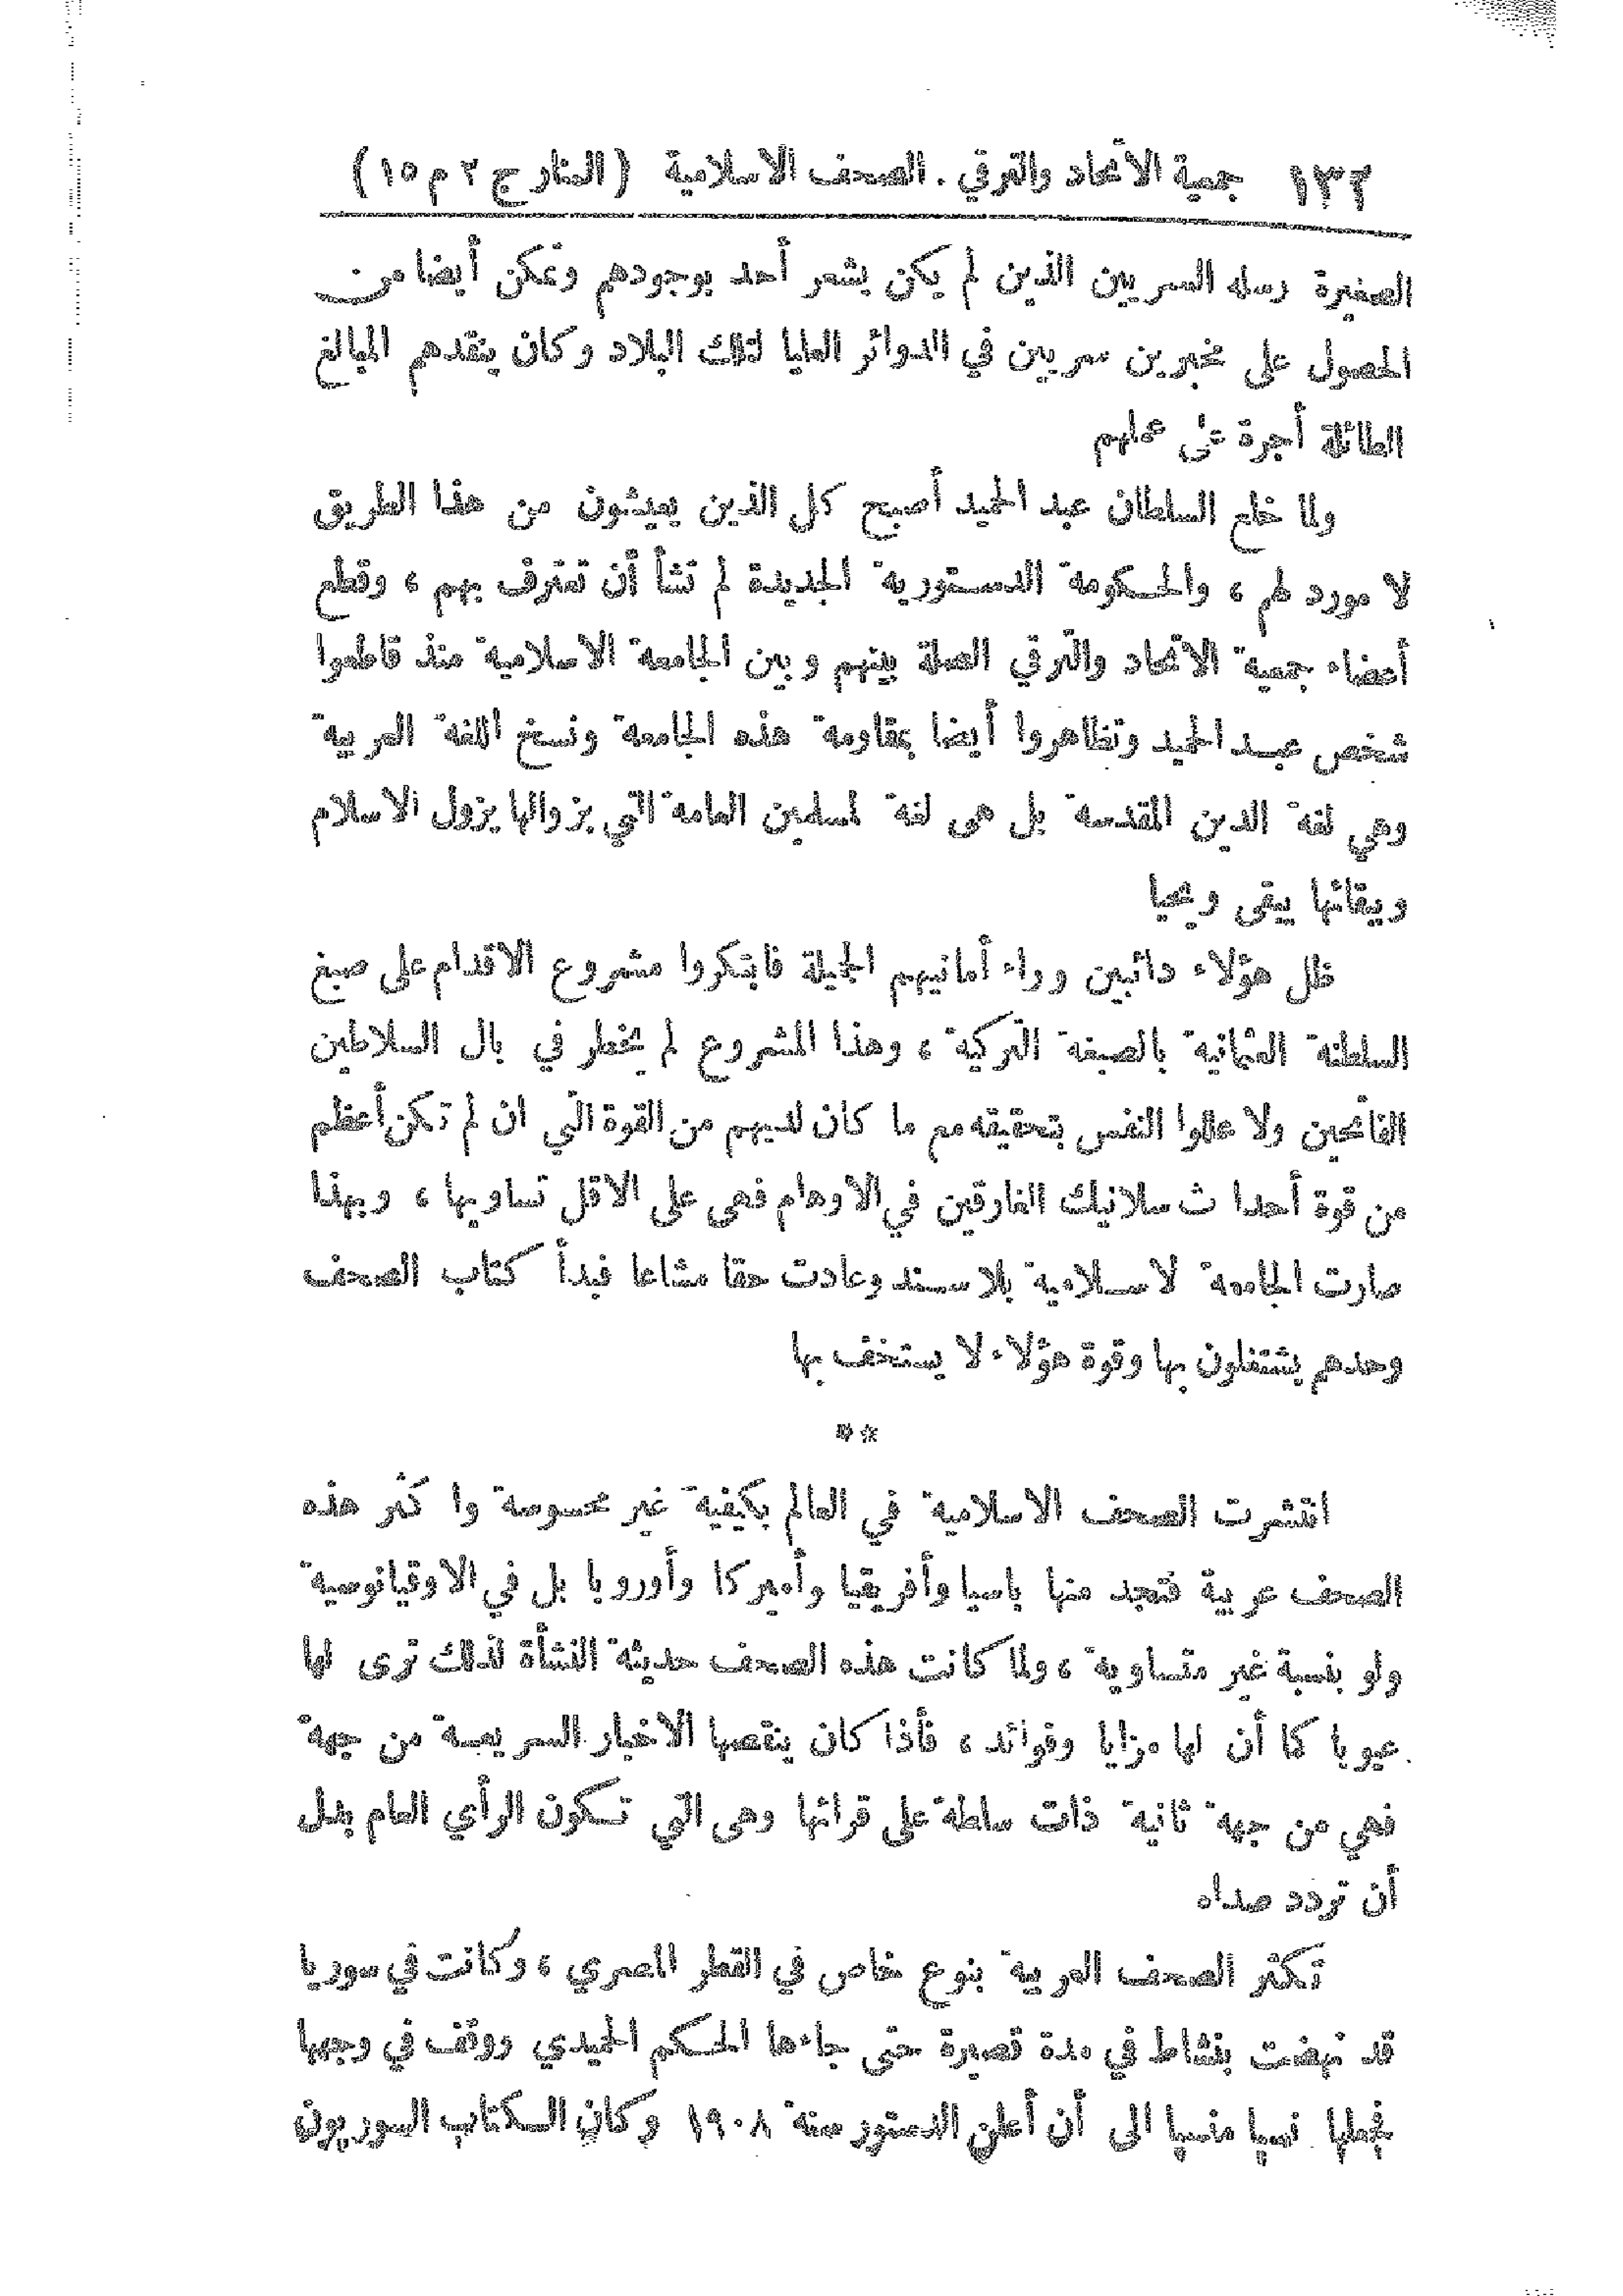 ١٣٢ جمعية الاتحاد والترقي . الصحف الاسلامية (المنار ج ٢ م ١٥)
الصغيرة رسله السريين الذين لم يكن يشعر أحد بوجودهم وتمكن أيضا من
الحصول على مخبرين سريين في الدوائر العليا لتلك البلاد وكان ينقدهم المبالغ
الطائلة أجرة على عملهم
ولما خلع السلطان عبد الحميد أصبح كل الذين يعيشون من هذا الطريق
لا مورد لهم ، والحكومة الدستورية الجديدة لم تشأ أن تعترف بهم ، وقطع
أعضاء جمعية الاتحاد والترقي الصلة بينهم وبين الجامعة الاسلامية منذ قاطعوا
شخص عبد الحميد وتظاهروا أيضا بمقاومة هذه الجامعة ونسخ اللغة العربية
وهي لغة الدين المقدسة بل هى لغة لمسلمين العامة التي بزوالها يزول الاسلام
وببقائها يبقى ويحيا
ظل هؤلاء دائبين وراء أمانيهم الجميلة فابتكروا مشروع الاقدام على صبغ
السلطنة العثمانية بالصبغة التركية ، وهذا المشروع لم يخطر في بال السلاطين
الفاتحين ولا عللوا النفس بتحقيقه مع ما كان لديهم من القوة التي ان لم تكن أعظم
من قوة أحداث سلانيك الغارقين في الاوهام فهى على الاقل تساويها ، وبهذا
صارت الجامعة لاسلامية بلا سند وعادت حقا مشاعا فبدأ كتاب الصحف
وحدهم يشتغلون بها وقوة هؤلاء لا يستخف بها
**
انتشرت الصحف الاسلامية في العالم بكيفية غير محسوسة وا كثر هذه
الصحف عربية فتجد منها باسيا وأفريقيا وأميركا وأوروبا بل في الاوقيانوسية
ولو بنسبة غير متساوية ، ولما كانت هذه الصحف حديثة النشأة لذلك ترى لها
عيوبا كما أن لها مزايا وفوائد ، فأذا كان ينقصها الاخبار السريعة من جهة
فهي من جهة ثانية ذات سلطة على قرائها وهى التي تكون الرأي العام بدل
أن تردد صداه
تكثر الصحف العربية بنوع خاص في القطر المصري ، وكانت في سوريا
قد نهضت بنشاط في مدة قصيرة حتى جاءها الحكم الحميدي ووقف في وجهها
فجعلها نسيا منسيا الى أن أعلن الدستور سنة ١٩٠٨ وكان الكتاب السوريون